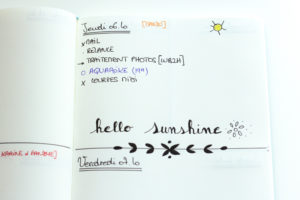 Jeudi 06.10
x MAIL
. RELANCE
→ TRAITEMENT PHOTOS [W&LH]
O AQUAPOKE (19H)
X COURSES MIDI
hello sunshine
Vendredi 07.10